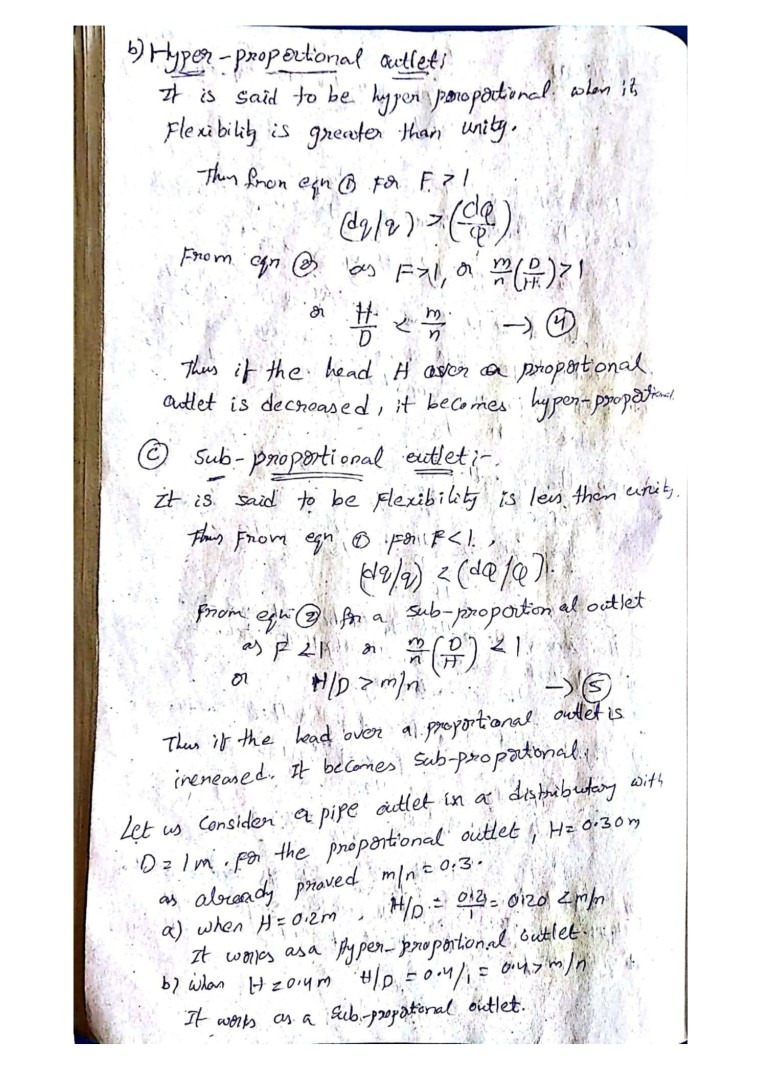 b) Hyper-proportional outlet;
It is said to be hyper proportional when it,
Flexibility is greater than unity.
Thus from eqn ① for F > 1
(dq/q) > (dQ/Q)
From eqn ② as F>1, or m/n (D/H) > 1
or H/D < m/n → ④
Thus if the head H over a proportional
outlet is decreased, it becomes hyper-proportional.
Ⓒ Sub-proportional outlet;-
It is said to be Flexibility is less than unity.
Thus From eqn ① for F<1,
(dq/q) < (dQ/Q).
From eqn ② for a sub-proportional outlet
as F < 1 or m/n (D/H) < 1
or H/D > m/n → ⑤
Thus if the head over a proportional outlet is
increased. It becomes Sub-proportional.
Let us consider a pipe outlet in a distributary with
D = 1m. for the proportional outlet, H= 0.30m
as already proved m/n = 0.3.
a) when H=0.2m, H/D = 0.2/1 = 0.20 < m/n
It works as a Hyper-proportional outlet.
b) when H = 0.4m H/D = 0.4/1 = 0.4 > m/n
It works as a Sub-proportional outlet.